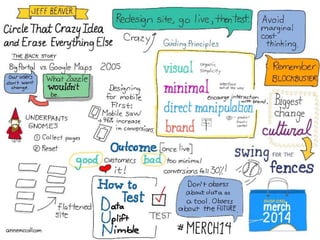 JEFF BEAVER
Circle That Crazy Idea
and Erase Everything Else
THE BACK STORY
Big Portal vs Google Maps 2005
Our users
don't want
change
What Zazzle
wouldn't
be.
UNDERPANTS
GNOMES
① Collect pages
② Reset
flattened
site
annemccoll.com
Redesign site, go live, then Test.
Crazy
Guiding Principles
visual
organic
simplicity
minimal
interface
out of the way
encourage interaction
with brand.
direct manipulation
brand
Designing
for mobile
First:
Mobile saw
+76% increase
in conversions
Outcome [once live]
good customers
it!
bad too minimal
conversions fell 30%!
How to
Test
Data
Uplift
Nimble
TEST
Don't obsess
about data as
a tool. Obsess
about the FUTURE
#MERCH14
Avoid
marginal
cost
thinking.
Remember
BLOCKBUSTER
Biggest
change
cultural
swing FOR THE
fences
merch
2014